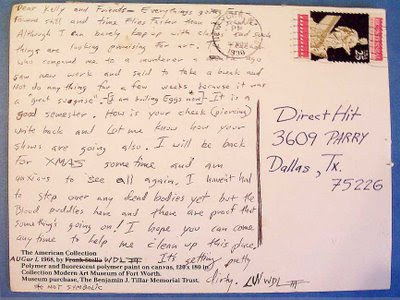 Dear Kelly and Friends - Everythings going
found still and time Flies faster than
Although I can barely keep up with and such
things are looking promising for art. I
who compared me to a murderer ago
saw new work and said to take a break and
not do any thing for a few weeks because it was
a "great surprise" - [I am hiding Eggs now] - It is a
good semester. How is your cheek (piercing)
write back and let me know how your
shows are going also. I will be back
for XMAS some time and am
anxious to see all again. I haven't had
to step over any dead bodies yet but the
Blood puddles here and there are proof that
something's going on! I hope you can come
any time to help me clean up this place,
It's getting pretty
dirty. WDL III
The American Collection
August 1, 1968, by Frank Stella WDL III
Polymer and fluorescent polymer paint on canvas, 120 x 180 in.
Collection Modern Art Museum of Fort Worth.
Museum purchase, The Benjamin J. Tillar Memorial Trust.
NOT SYMBOLIC
PM
1990
25
Direct Hit
3609 PARRY
Dallas, Tx.
75226